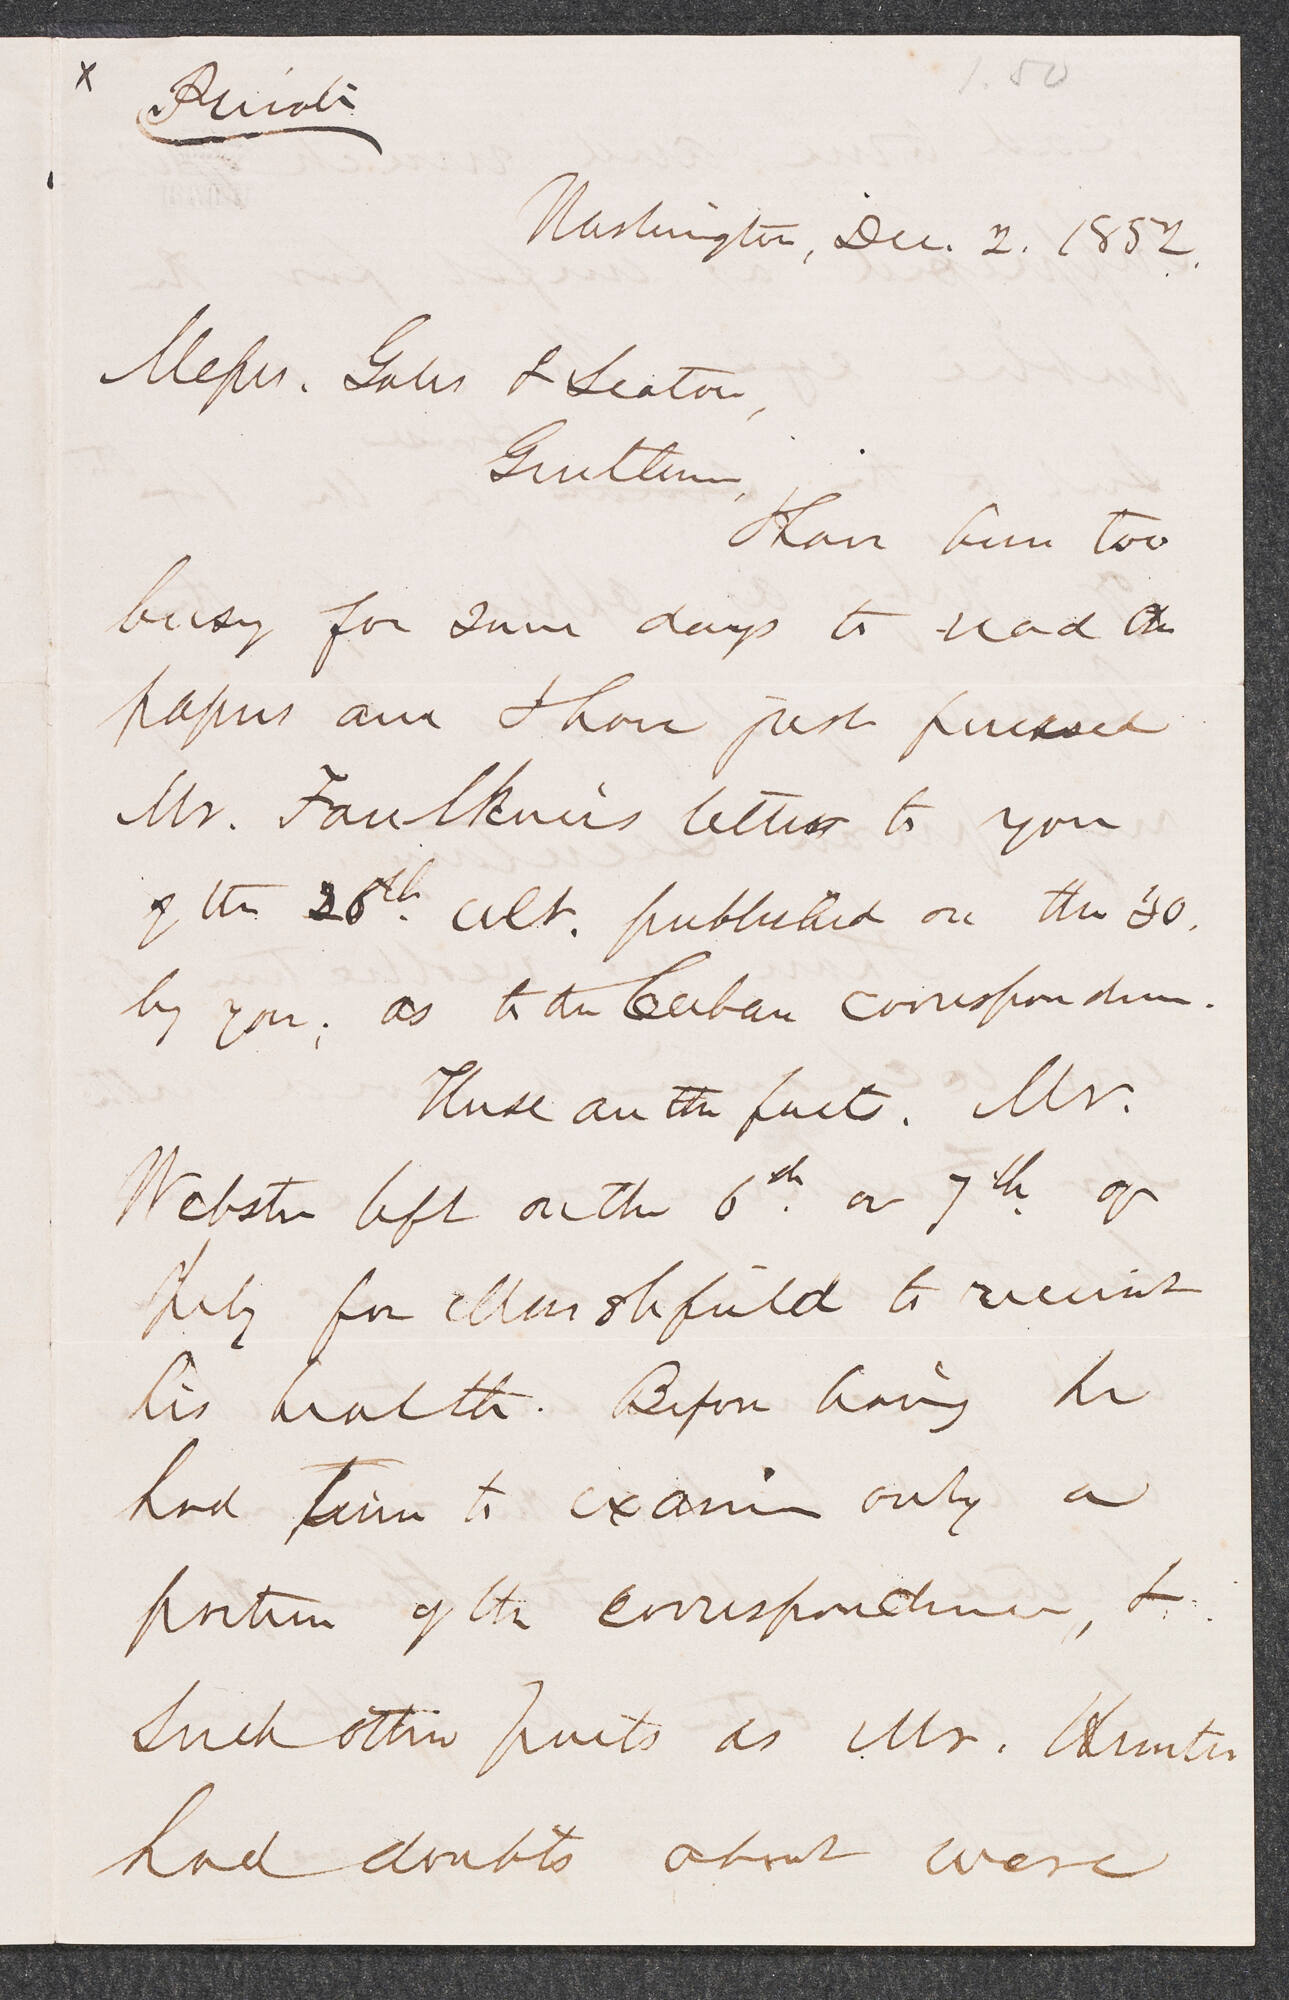 x
Private
1.50
Washington, Dec. 2. 1852.
Messrs. Gales & Seaton,
Gentlemen,
I have been too
busy for some days to read the
papers and I have just perused
Mr. Faulkner's letter to you
of the 26th. ult. published on the 30.
by you; as to the Cuban correspondence.
These are the facts. Mr.
Webster left on the 6th. or 7th. of
July for Marshfield to recruit
his health. Before leaving he
had time to examine only a
portion of the correspondence, &
such other parts as Mr. Hunter
had doubts about were